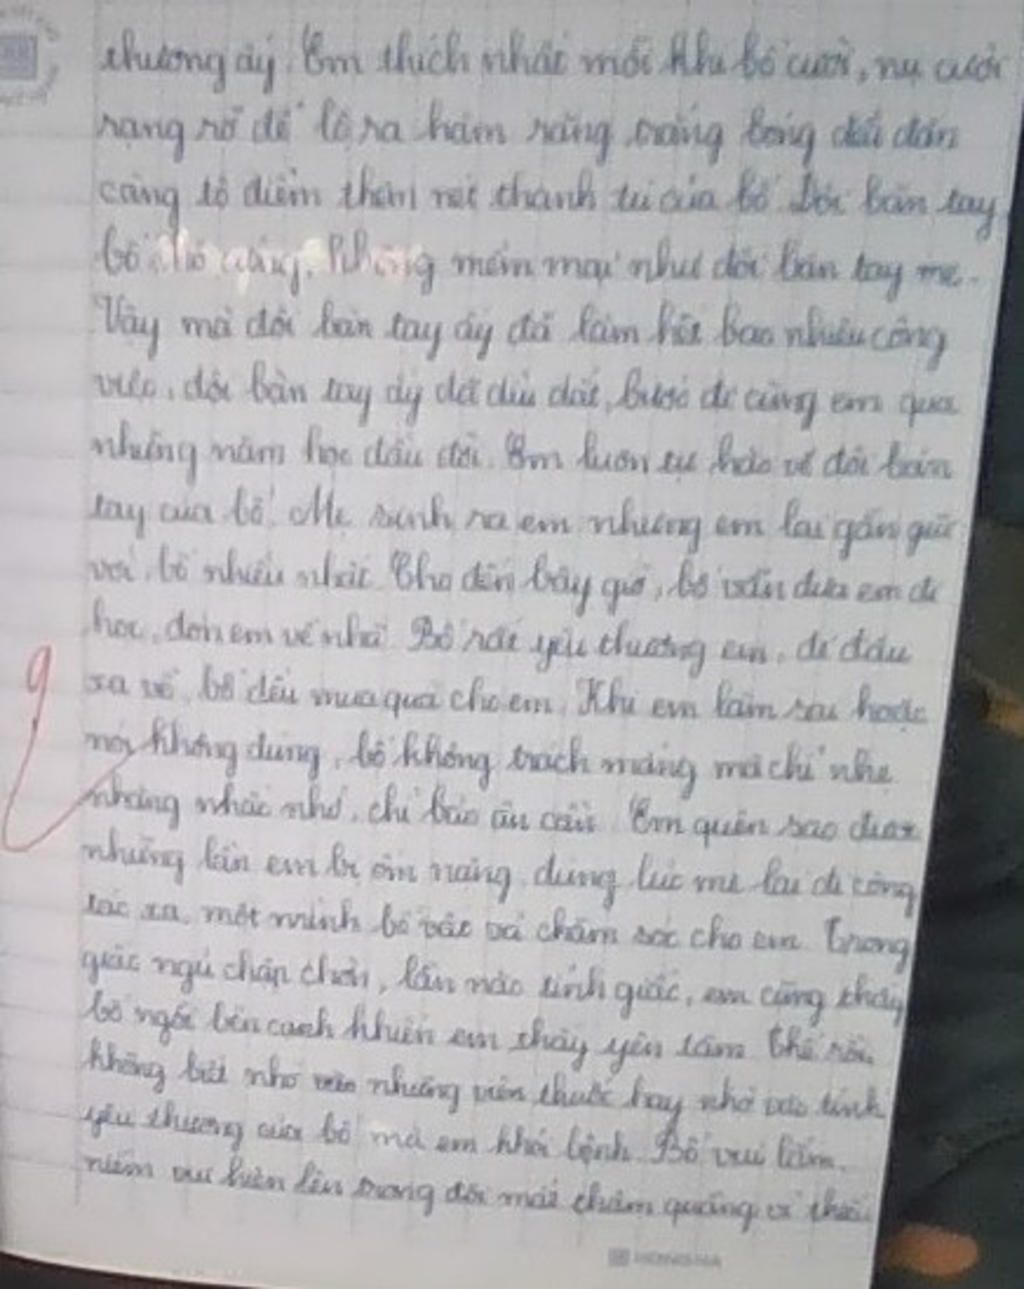 thương ấy. Em thích nhất mỗi khi bố cười, nụ cười
rạng rỡ để lộ ra hàm răng trắng bóng đều đặn
càng tô điểm thêm nét thanh tú của bố. Đôi bàn tay
bố thô cứng, không mềm mại như đôi bàn tay mẹ.
Vậy mà đôi bàn tay ấy đã làm hết bao nhiêu công
việc, đôi bàn tay ấy đã dìu dắt, bước đi cùng em qua
những năm học đầu đời. Em luôn tự hào về đôi bàn
tay của bố. Mẹ sinh ra em nhưng em lại gần gũi
với bố nhiều nhất. Cho đến bây giờ, bố vẫn đưa em đi
học, đón em về nhà. Bố rất yêu thương em, đi đâu
xa về, bố đều mua quà cho em. Khi em làm sai hoặc
nói không đúng, bố không trách mắng mà chỉ nhẹ
nhàng nhắc nhở, chỉ bảo ân cần. Em quên sao được
những lần em bị ốm nặng, đúng lúc mẹ lại đi công
tác xa, một mình bố vất vả chăm sóc cho em. Trong
giấc ngủ chập chờn, lần nào tỉnh giấc, em cũng thấy
bố ngồi bên cạnh khiến em thấy yên tâm. Thế rồi,
không biết nhờ vào những viên thuốc hay nhờ vào tình
yêu thương của bố mà em khỏi bệnh. Bố vui lắm,
niềm vui hiện lên trong đôi mắt thâm quầng vì thiếu
HONG HA